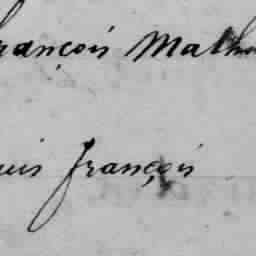 rançois Math
uis françois